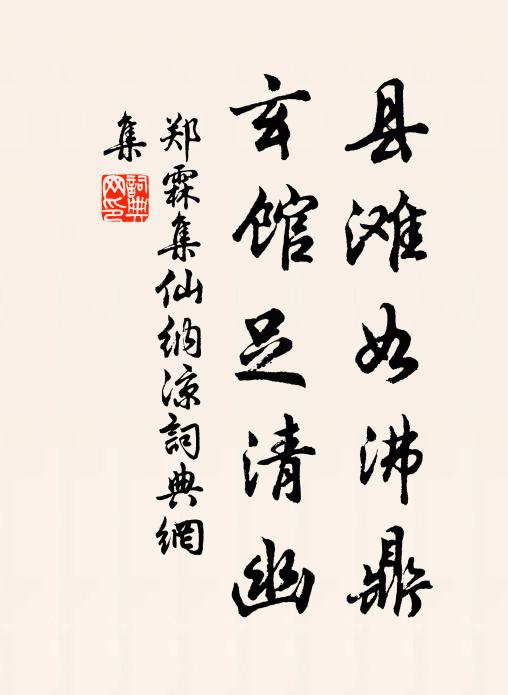 县滩如沸鼎
玄馆足清幽
郑霖集仙纳凉詞典網
集
詞典
网印